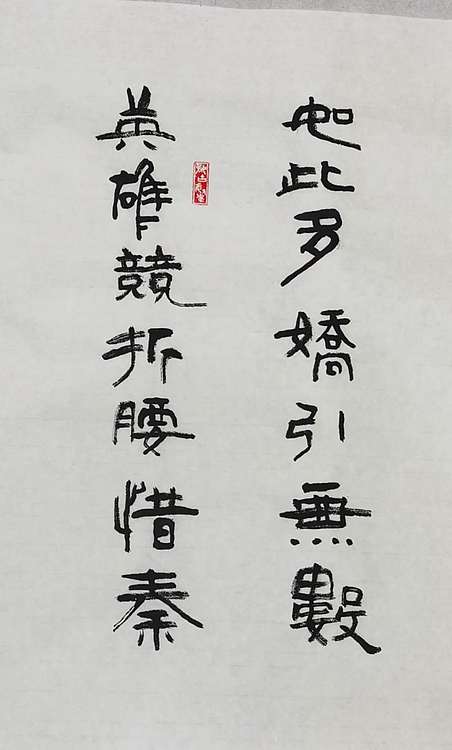 如此多嬌引無數
英雄競折腰惜秦